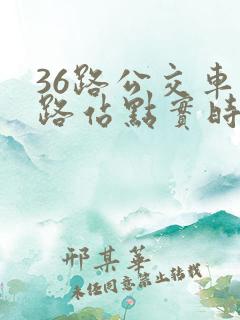 36路公交車
路佔點實時
邢某華
未經同意禁止轉載